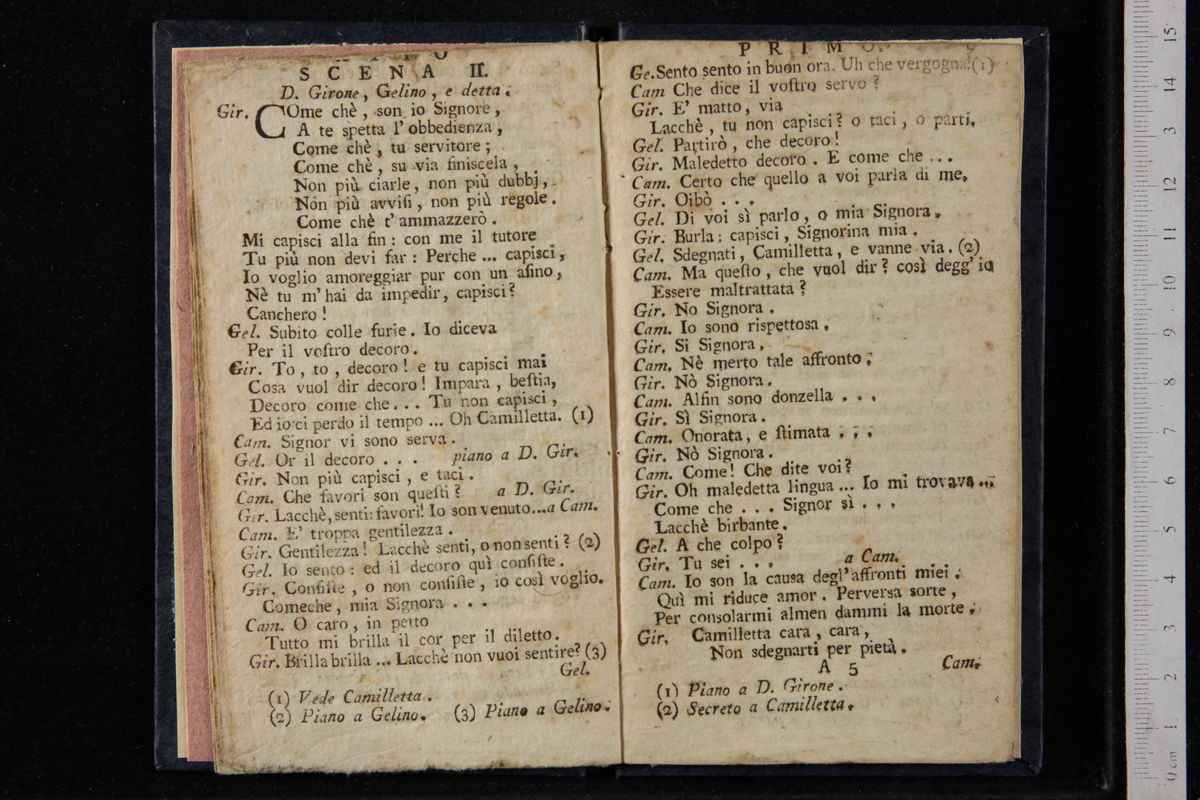 SCENA II.
D. Girone, Gelino, e detta.
Gir. COme chè, son io Signore,
A te spetta l'obbedienza,
Come chè, tu servitore;
Come chè, su via finiscela,
Non più ciarle, non più dubbj,
Non più avvisi, non più regole.
Come chè t'ammazzerò.
Mi capisci alla fin: con me il tutore
Tu più non devi far: Perche ... capisci,
Io voglio amoreggiar pur con un asino,
Nè tu m'hai da impedir, capisci?
Canchero!
Gel. Subito colle furie. Io diceva
Per il vostro decoro.
Gir. To, to, decoro! e tu capisci mai
Cosa vuol dir decoro! Impara, bestia,
Decoro come che... Tu non capisci,
Ed io ci perdo il tempo ... Oh Camilletta. (1)
Cam. Signor vi sono serva.
Gel. Or il decoro . . . piano a D. Gir.
Gir. Non più capisci, e taci.
Cam. Che favori son questi? a D. Gir.
Gir. Lacchè, senti: favori! Io son venuto...a Cam.
Cam. E' troppa gentilezza.
Gir. Gentilezza! Lacchè senti, o non senti? (2)
Gel. Io sento: ed il decoro quì consiste.
Gir. Consiste, o non consiste, io così voglio.
Comeche, mia Signora . . .
Cam. O caro, in petto
Tutto mi brilla il cor per il diletto.
Gir. Brilla brilla ... Lacchè non vuoi sentire? (3)
Gel.
(1) Vede Camilletta.
(2) Piano a Gelino. (3) Piano a Gelino.
PRIMO. 9
Ge. Sento sento in buon ora. Uh che vergogna! (1)
Cam Che dice il vostro servo?
Gir. E' matto, via
Lacchè, tu non capisci? o taci, o parti.
Gel. Partirò, che decoro!
Gir. Maledetto decoro. E come che ...
Cam. Certo che quello a voi parla di me.
Gir. Oibò . . .
Gel. Di voi sì parlo, o mia Signora.
Gir. Burla; capisci, Signorina mia.
Gel. Sdegnati, Camilletta, e vanne via. (2)
Cam. Ma questo, che vuol dir? così degg'io
Essere maltrattata?
Gir. No Signora.
Cam. Io sono rispettosa.
Gir. Si Signora.
Cam. Nè merto tale affronto;
Gir. Nò Signora.
Cam. Alfin sono donzella . . .
Gir. Sì Signora.
Cam. Onorata, e stimata . . .
Gir. Nò Signora.
Cam. Come! Che dite voi?
Gir. Oh maledetta lingua ... Io mi trovava...
Come che . . . Signor sì . . .
Lacchè birbante.
Gel. A che colpo?
Gir. Tu sei . . . a Cam.
Cam. Io son la causa degl'affronti miei.
Quì mi riduce amor. Perversa sorte,
Per consolarmi almen dammi la morte.
Gir. Camilletta cara, cara,
Non sdegnarti per pietà.
A 5 Cam.
(1) Piano a D. Girone.
(2) Secreto a Camilletta.